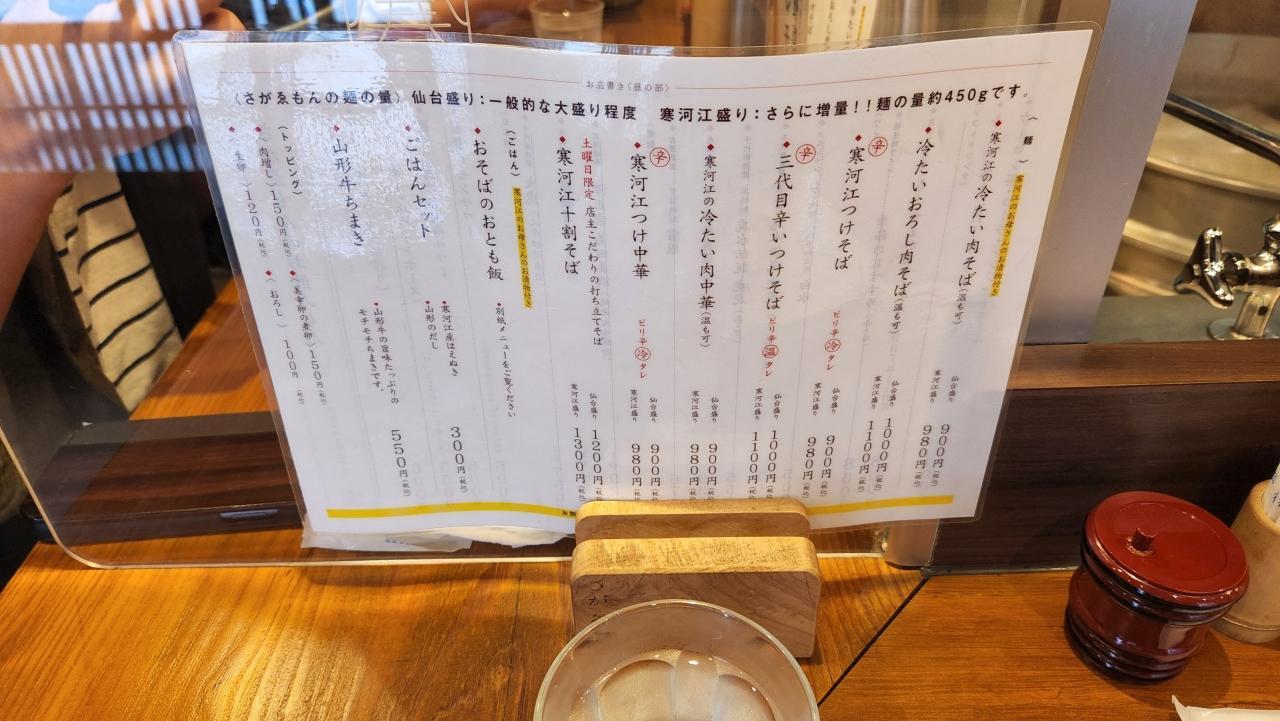 お品書き〈昼の部〉
〈さがゑもんの麺の量〉仙台盛り：一般的な大盛り程度　寒河江盛り：さらに増量！！麺の量約450gです。
〈麺〉寒河江のお母さんのお漬物付き
◆寒河江の冷たい肉そば（温も可）
仙台盛り 900円（税込）
寒河江盛り 980円（税込）
◆冷たいおろし肉そば（温も可）
仙台盛り 1000円（税込）
寒河江盛り 1100円（税込）
辛
◆寒河江つけそば ピリ辛冷タレ
仙台盛り 900円（税込）
寒河江盛り 980円（税込）
辛
◆三代目辛いつけそば ピリ辛温タレ
仙台盛り 1000円（税込）
寒河江盛り 1100円（税込）
◆寒河江の冷たい肉中華（温も可）
仙台盛り 900円（税込）
寒河江盛り 980円（税込）
辛
◆寒河江つけ中華 ピリ辛冷タレ
仙台盛り 900円（税込）
寒河江盛り 980円（税込）
土曜日限定 店主こだわりの打ち立てそば
◆寒河江十割そば
仙台盛り 1200円（税込）
寒河江盛り 1300円（税込）
〈ごはん〉寒河江のお母さんのお漬物付き
◆おそばのおとも飯
◆別紙メニューをご覧ください
◆ごはんセット
◆寒河江産はえぬき
◆山形のだし
300円（税込）
◆山形牛ちまき
◆山形牛の旨味たっぷりの
モチモチちまきです。
550円（税込）
〈トッピング〉
◆〈肉増し〉150円（税込）
◆〈美幸卵の煮卵〉150円（税込）
◆〈生卵〉120円（税込）
◆〈おろし〉100円（税込）